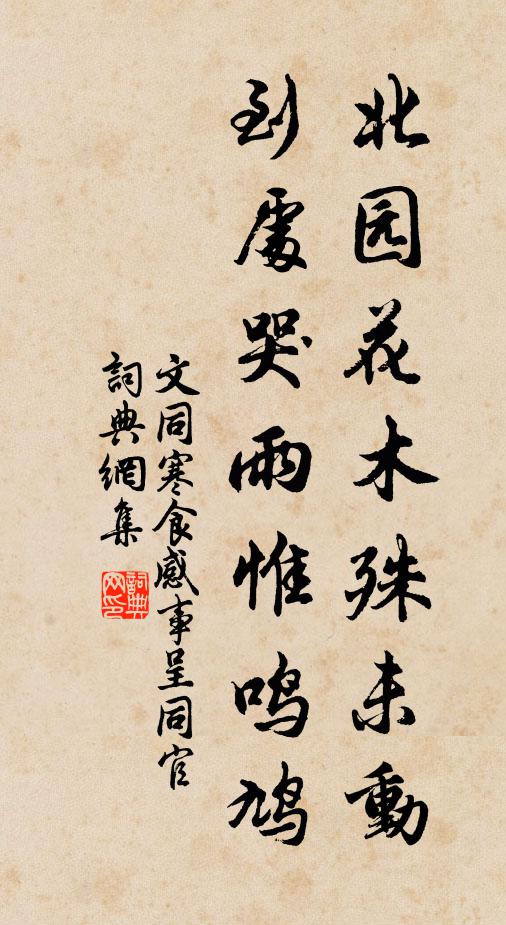 北园花木殊未動
到處哭雨惟鸣鸠
文同寒食感事呈同官
詞典網集
詞典网印